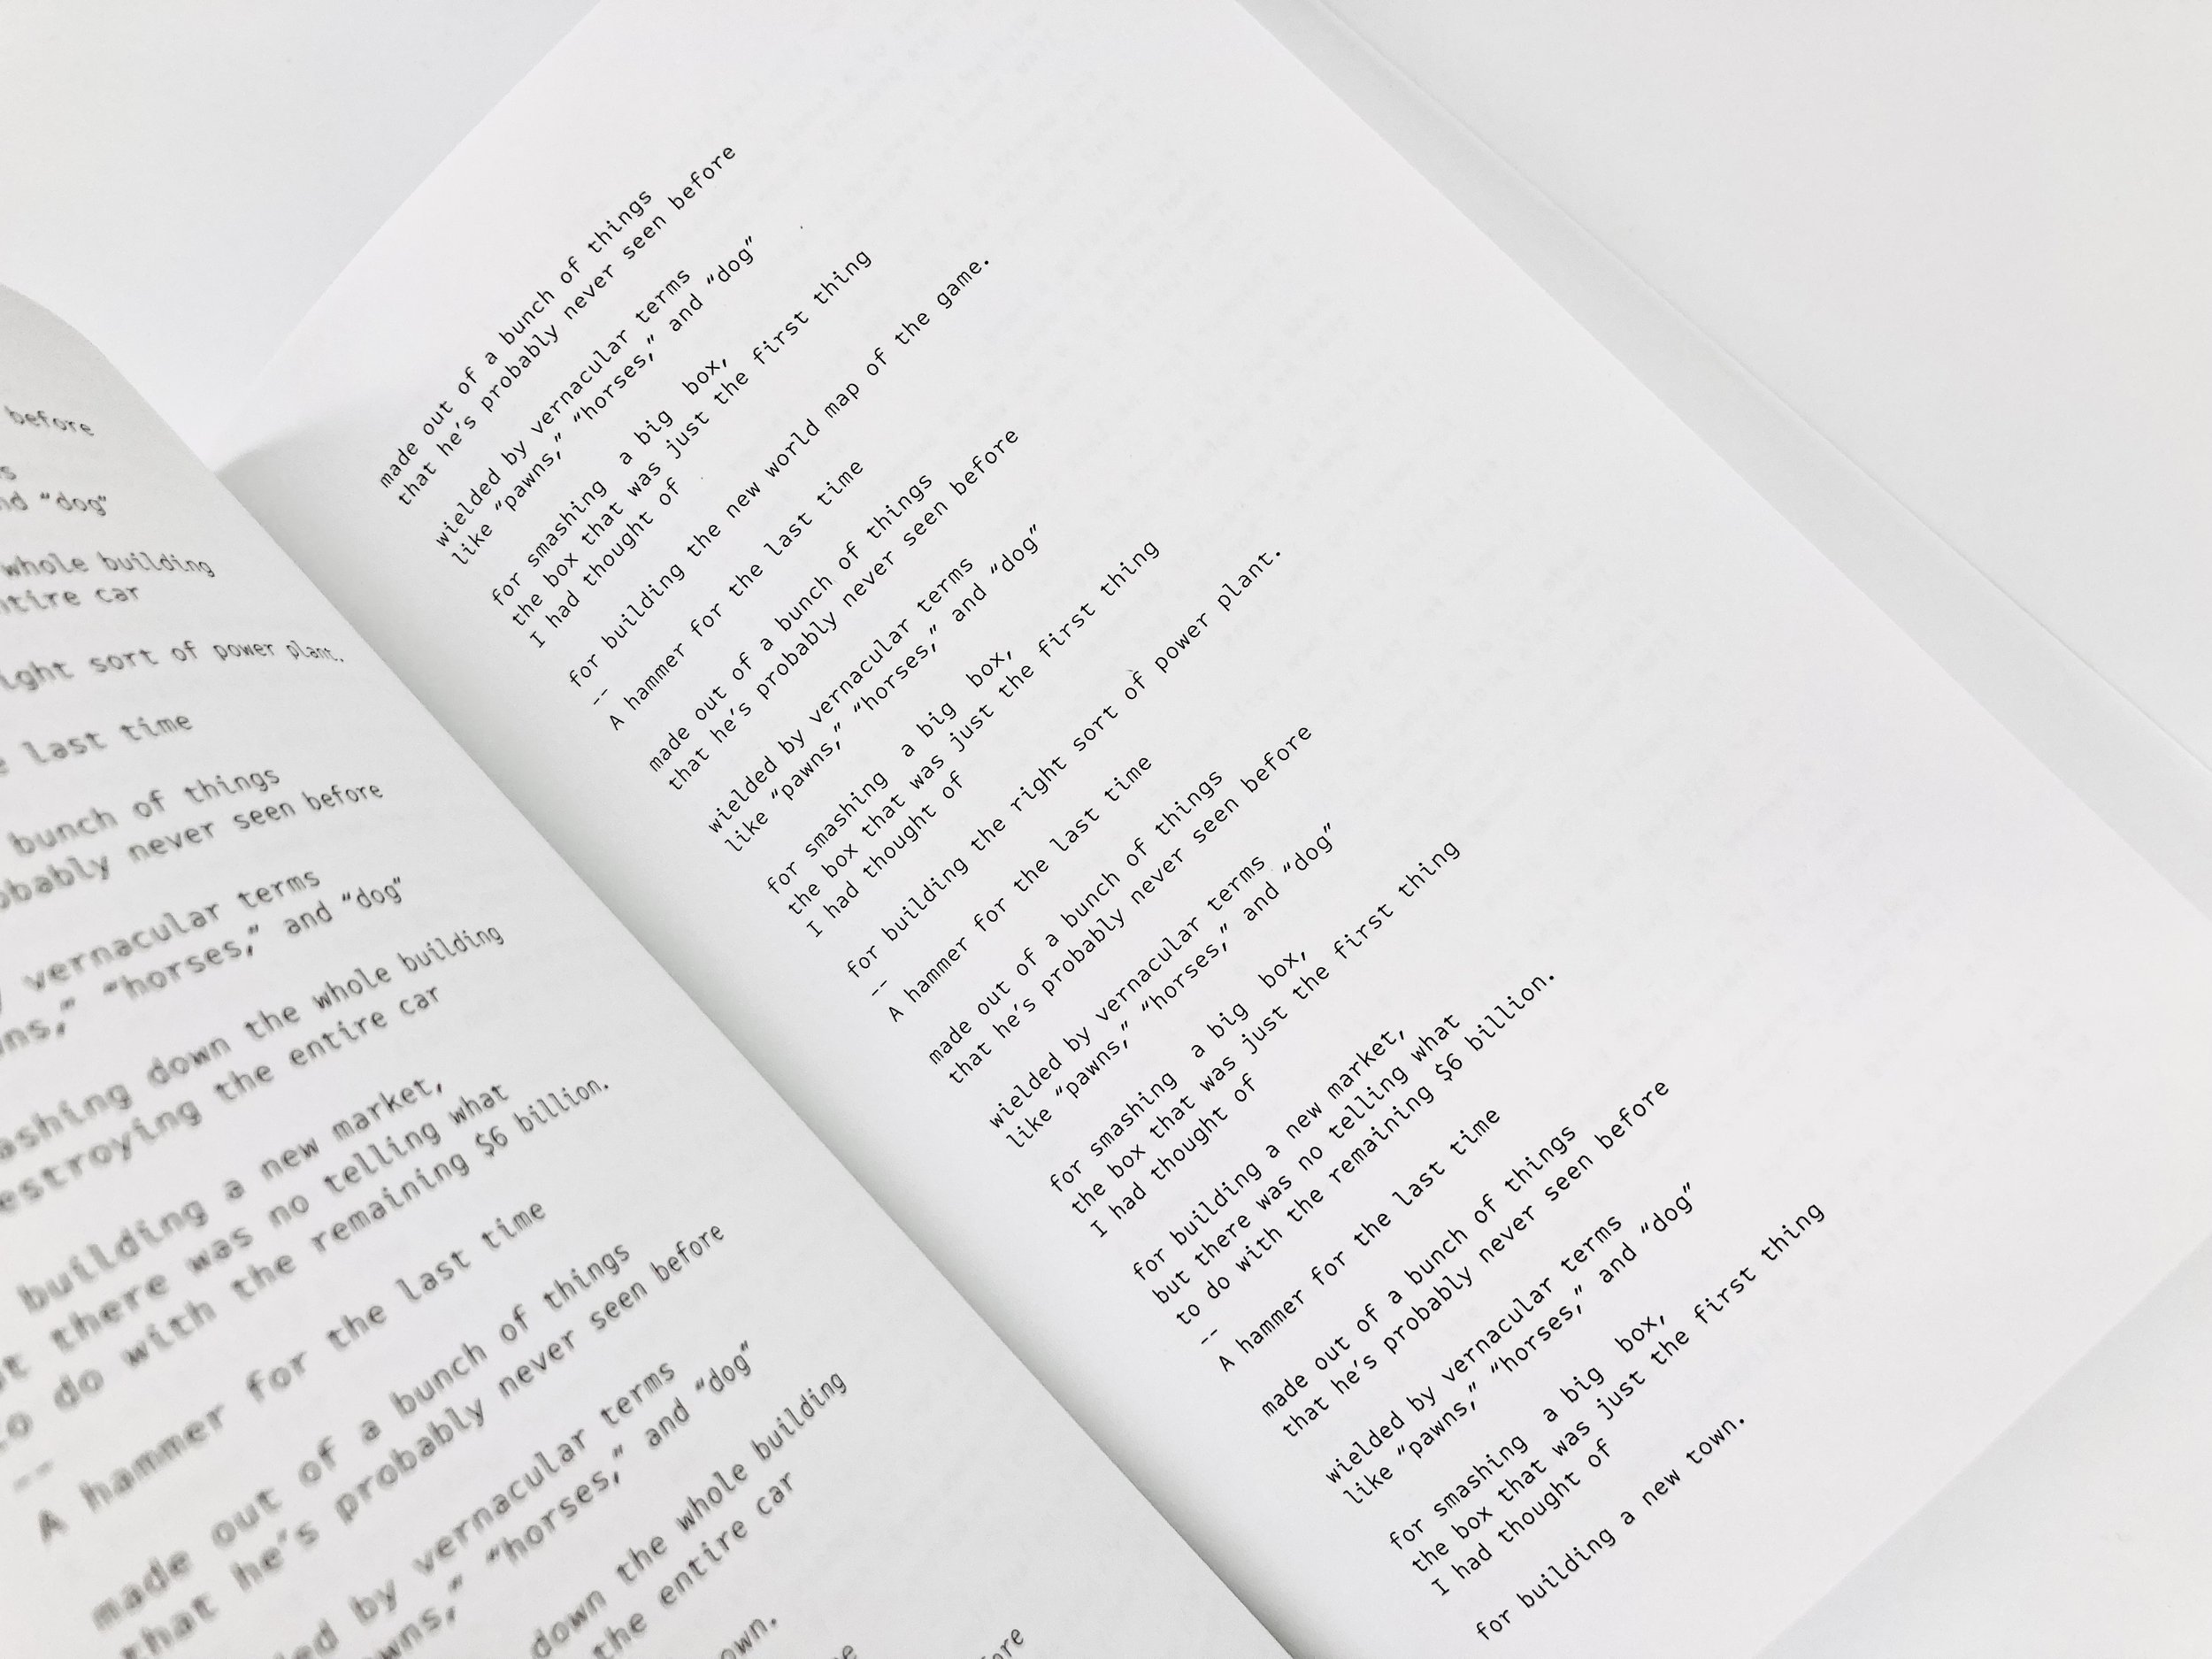 before
"dog"
whole building
car
sort of power plant.
last time
bunch of things
never seen before
vernacular terms
"horses," and "dog"
down the whole building
the entire car
building a new market,
there was no telling what
do with the remaining $6 billion.
--
A hammer for the last time
made out of a bunch of things
that he's probably never seen before
by vernacular terms
"horses," and "dog"
down the whole building
the entire car
made out of a bunch of things
that he's probably never seen before
wielded by vernacular terms
like "pawns," "horses," and "dog"
for smashing a big box,
the box that was just the first thing
I had thought of
for building the new world map of the game.
--
A hammer for the last time
made out of a bunch of things
that he's probably never seen before
wielded by vernacular terms
like "pawns," "horses," and "dog"
for smashing a big box,
the box that was just the first thing
I had thought of
for building the right sort of power plant.
--
A hammer for the last time
made out of a bunch of things
that he's probably never seen before
wielded by vernacular terms
like "pawns," "horses," and "dog"
for smashing a big box,
the box that was just the first thing
I had thought of
for building a new market,
but there was no telling what
to do with the remaining $6 billion.
--
A hammer for the last time
made out of a bunch of things
that he's probably never seen before
wielded by vernacular terms
like "pawns," "horses," and "dog"
for smashing a big box,
the box that was just the first thing
I had thought of
for building a new town.